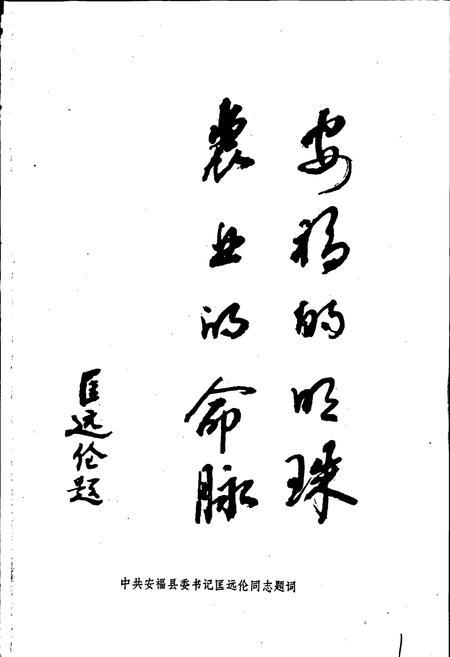 安福的明珠
農业的命脉
匡远伦题
中共安福县委书记匡远伦同志题词
1